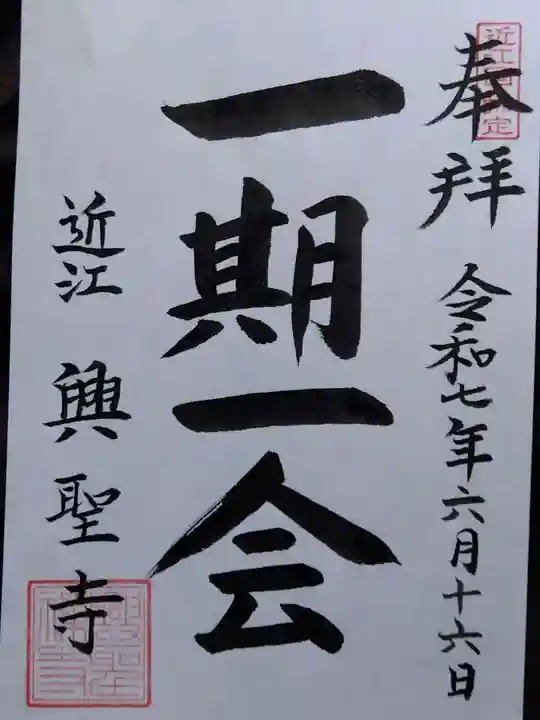 奉拝
令和七年六月十六日
一期一会
近江
興聖寺